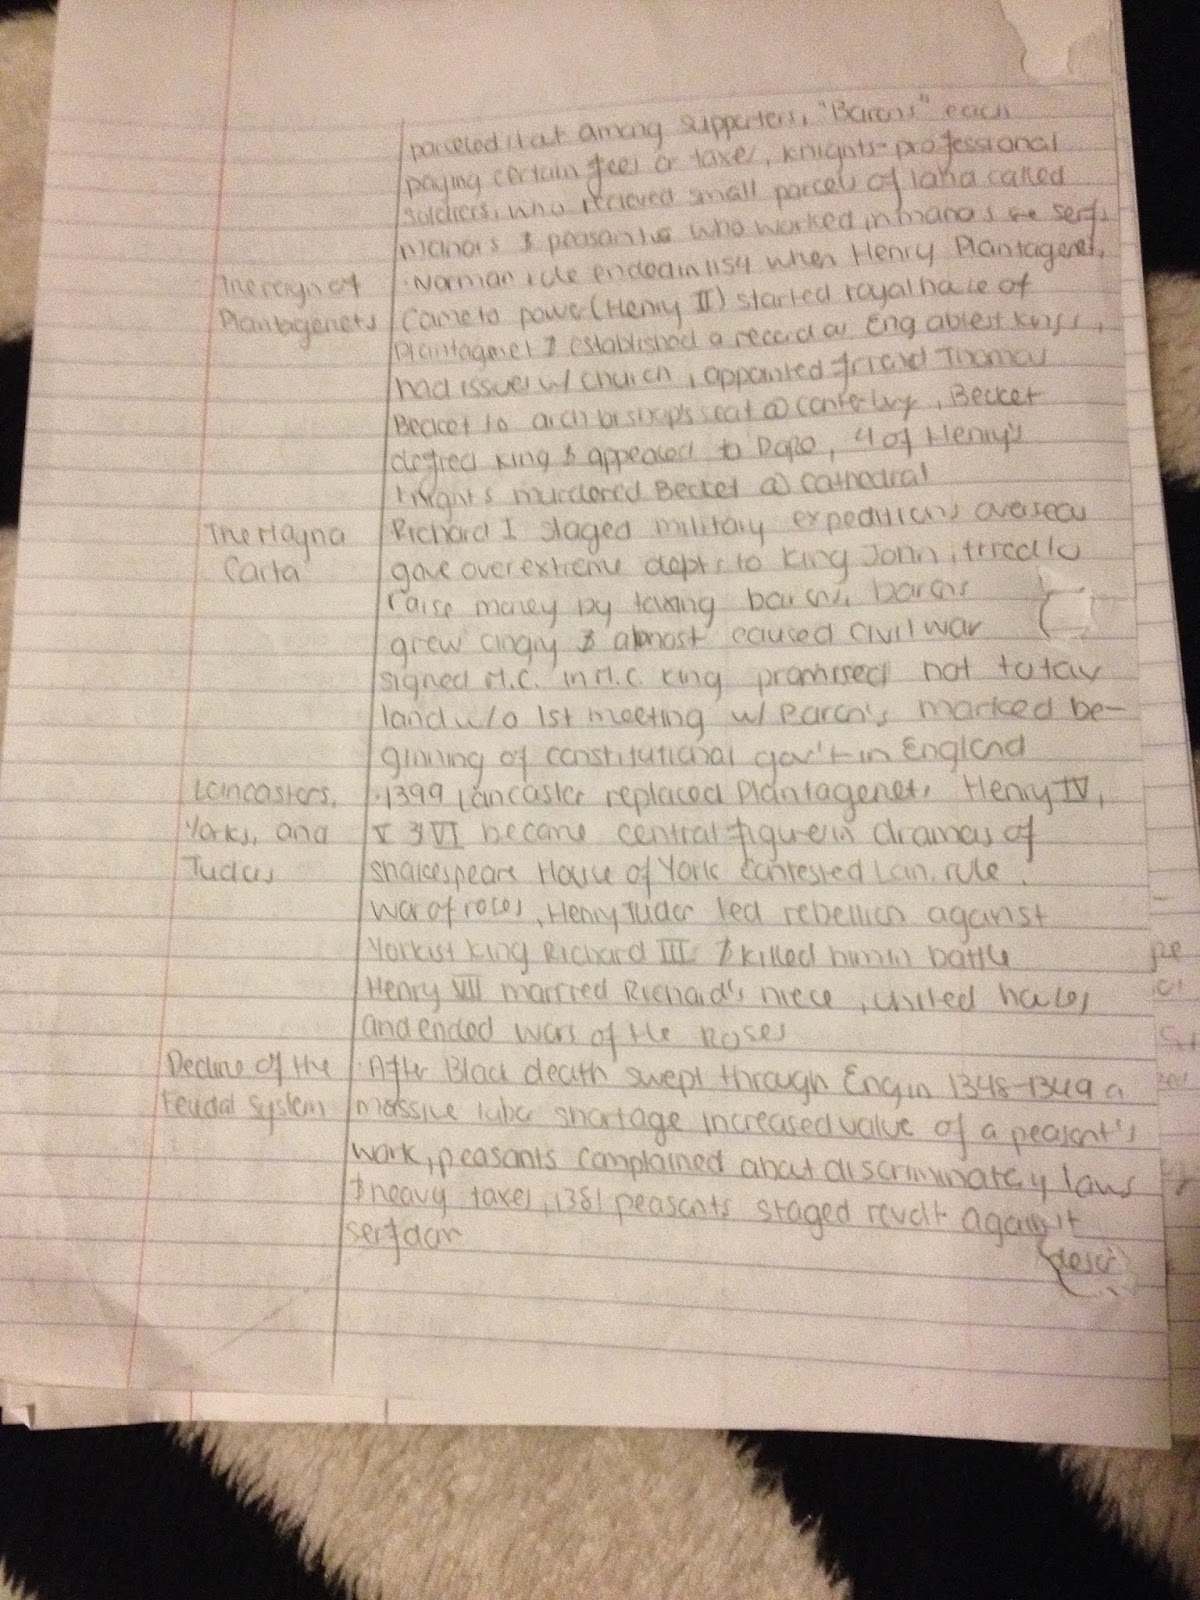 parceled it out among supporters, "Barons" each
paying certain fees or taxes, knights-professional
soldiers, who recieved small parcels of land called
manors & peasants who worked in manors are serfs
The reign of
Plantagenets
·Norman rule ended in 1154 when Henry Plantagenet,
came to power (Henry II) started royal house of
Plantagenet & established a record as Eng ablest kings,
had issues w/ church, appointed friend Thomas
Becket to archbishop's seat @ Canterbury, Becket
defied king & appealed to Pope, 4 of Henry's
knights murdered Becket @ cathedral
The Magna
Carta
Richard I staged military expeditions overseas
gave over extreme depts to King John, tried to
raise money by taxing barons, barons
grew angry & almost caused civil war
signed M.C. in M.C. king promised not to tax
land w/o 1st meeting w/ Baron's marked be-
ginning of constitutional gov't in England
Lancasters,
Yorks, and
Tudors
·1399 Lancaster replaced Plantagenet, Henry IV,
V & VI became central figure in dramas of
Shakespeare House of York contested Lan. rule.
War of roses, Henry Tudor led rebellion against
Yorkist King Richard III & killed him in battle
Henry VII married Richard's niece, united houses
and ended wars of the Roses
Decline of the
Feudal System
·After Black death swept through Eng in 1348-1349 a
massive labor shortage increased value of a peasant's
work, peasants complained about discriminatory laws
& heavy taxes, 1381 peasants staged revolt against
serfdom